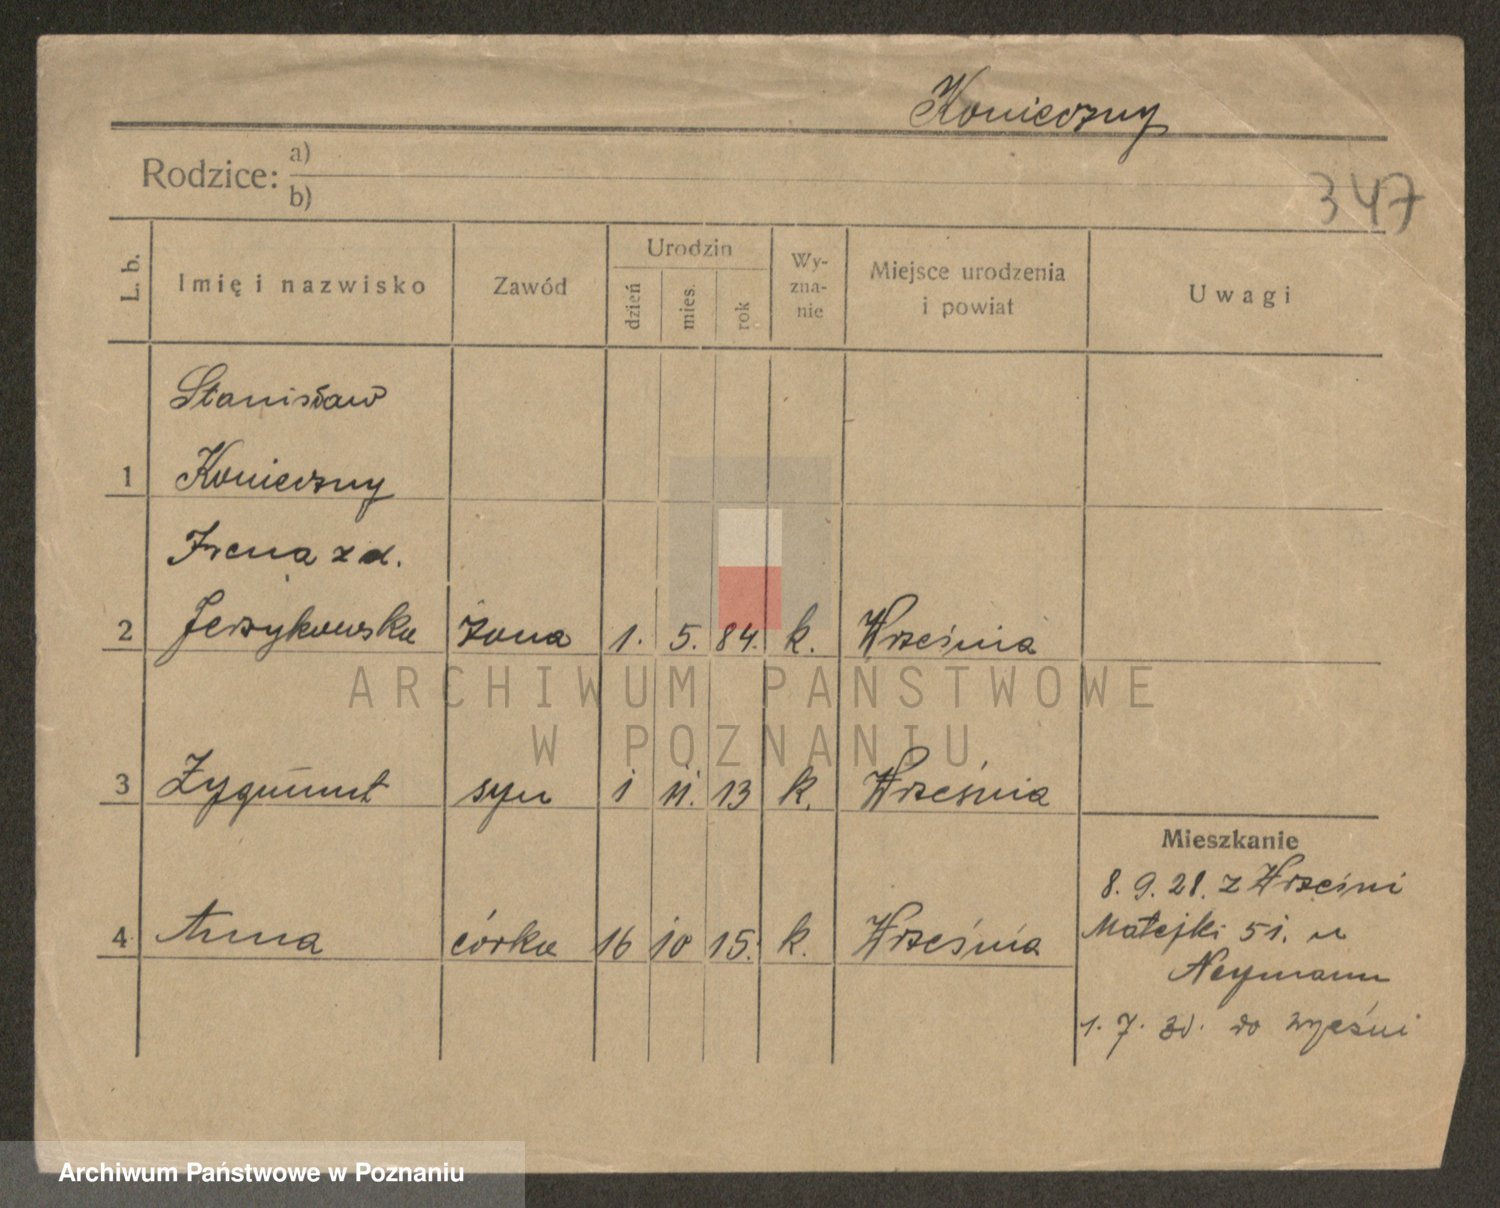 Konieczny
Rodzice: a)
b)
347
L. b. Imię i nazwisko Zawód Urodzin dzień mies. rok Wy-zna-nie Miejsce urodzenia i powiat Uwagi
Stanisław
1 Konieczny
Irena z d.
2 Jerzykowska żona 1. 5. 84. k. Września
ARCHIWUM PAŃSTWOWE
W POZNANIU
3 Zygmunt syn 1 11. 13 k. Września
Mieszkanie
8. 9. 28. z Wrześni
4 Anna córka 16 10 15. k. Września
Matejki 51. u
Neymann
1. 7. 30. do Wrześni
Archiwum Państwowe w Poznaniu